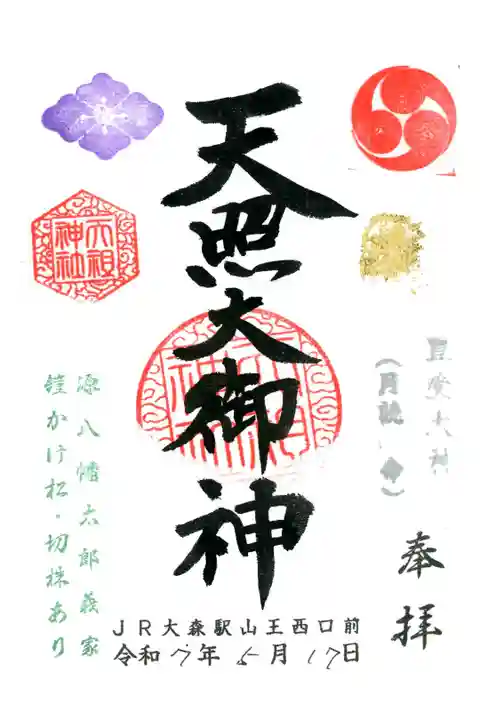 奉拝
天照大御神
天祖
神社
源八幡太郎義家
鎧かけ松・切株あり
JR大森駅山王西口前
令和7年5月17日